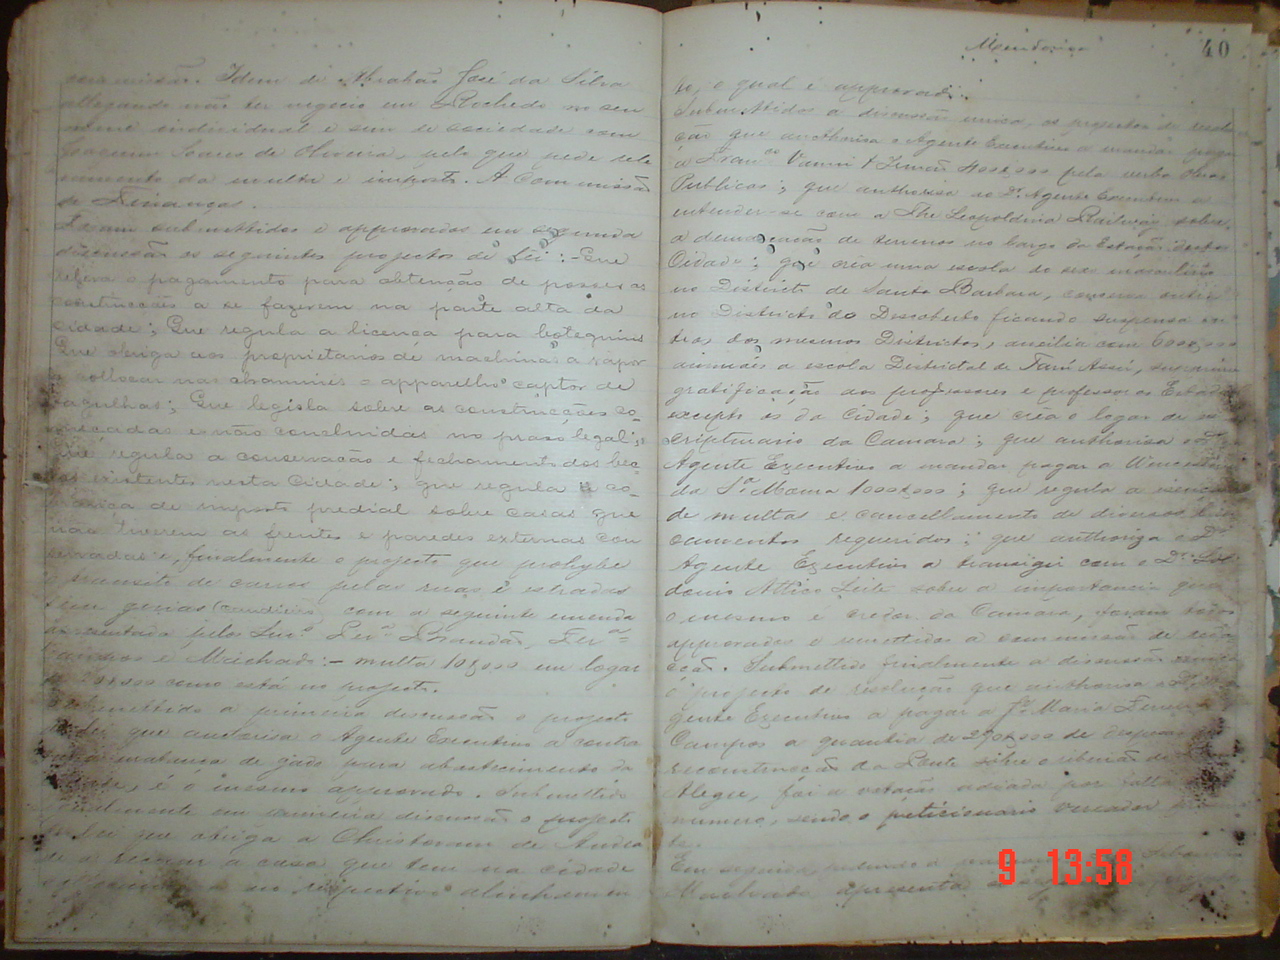 commissão. Idem de Abrahão José da Silva
allegando não ter negocio em Rochedo no seu
nome individual e sim de sociedade com
Joaquim Soares de Oliveira, pelo que pede rele
vamento da multa e imposto. A Commissão
de Finanças.
Foram submettidos e approvados em segunda
discussão os seguintes projectos de Lei: - Que
releva o pagamento para obtenção de posses as
construcções a se fazerem na parte alta da
cidade; Que regula a licença para botequins
Que obriga aos proprietarios de machinas a vapor
a collocar nas chaminés o apparelho captor de
fagulhas; Que legisla sobre as construcções co-
meçadas e não concluidas no praso legal;
Que regula a conservação e fechamento dos bec-
cos existentes nesta Cidade; que regula a co-
brança de imposto predial sobre casas que
não tiverem as frentes e paredes externas con
servadas e, finalmente o projecto que prohybe
o transito de carros pelas ruas e estradas
sem guias (candieiro) com a seguinte emenda
apresentada pelos Snrs Brandão,
e Machado: - multa 10$000 em logar
de como está no projecto.
Submettido a primeira discussão o projecto
de lei que auctorisa o Agente Executivo a contra
matança de gado para abastecimento da
cidade, é o mesmo approvado. Submettido
finalmente em primeira discussão o projecto
de Lei que obriga a Christovam de
a recuar a casa que tem na cidade
respectivo alinhamen
Mendonça
40
to, o qual é approvado.
Submettidos a discussão unica, os projectos de resolu
ção que authorisa o Agente Executivo a mandar pagar
a Franco Vanni & Irmão 400$000 pela verba Obras
Publicas; que authorisa ao Dr. Agente Executivo a
entender-se com a The Leopoldina Railway sobre
a demarcação de terrenos no largo da Estação desta
Cidade; que cria uma escola do sexo masculino
no Districto de Santa Barbara,
no Districto do Descoberto ficando suspensa
dos mesmos Districtos, auxilia com 600$000
annuaes a escola Districtal de Tarú Assú,
gratificação aos professores e professoras Estado
excepto os da Cidade; que crêa o logar de es
cripturario da Camara; que authorisa o Dr.
Agente Executivo a mandar pagar a
da Sa Moura 100$000; que regula a isenção
de multas e cancellamento de diversos
requeridos; que authoriza o Dr.
Agente Executivo a transigir com o Dr.
Attico Leite sobre a importancia que
o mesmo é credor da Camara, foram todos
approvados e remettidos a commissão de reda
cção. Submettido finalmente a discussão
o projecto de resolução que authorisa o Dr. A
gente Executivo a pagar a Je Maria Ferreira
Campos a quantia de 270$000 de despezas
reconstrucção da Ponte sobre o ribeirão de
Alegre, foi a votação adiada por falta de
numero, sendo o peticionario vereador
te.
Em seguida
Machado apresenta
9 13:58